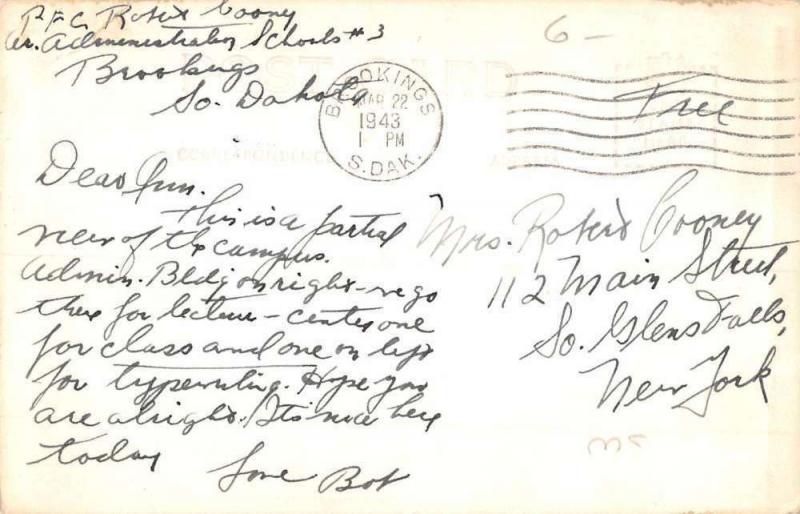 P.F.C. Robert Cooney
Ar. Administration Schools #3
Brookings
So. Dakota
6-
BROOKINGS
MAR 22
1943
1- PM
S. DAK.
Free
CORRESPONDENCE
Dear Ann.
This is a partial
view of the campus.
Admin. Bldg on right - we go
there for lecture - center one
for class and one on left
for typewriting. Hope you
are alright. It's nice here
today
Love Bob
Mrs. Robert Cooney
112 Main Street,
So. Glens Falls,
New York